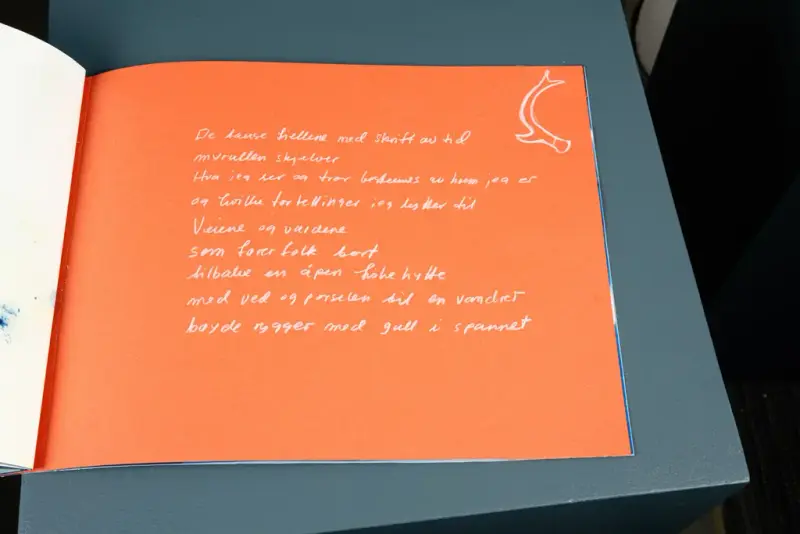 De tause hellene med skrift av tid
myrullen skjelver
Hva jeg ser og tror bestemmes av hvem jeg er
og hvilke fortellinger jeg lytter til
Veiene og vardene
som fører folk bort
tilbake en åpen hytte
med ved og porselen til en vandrer
bøyde rygger med gull i spannet